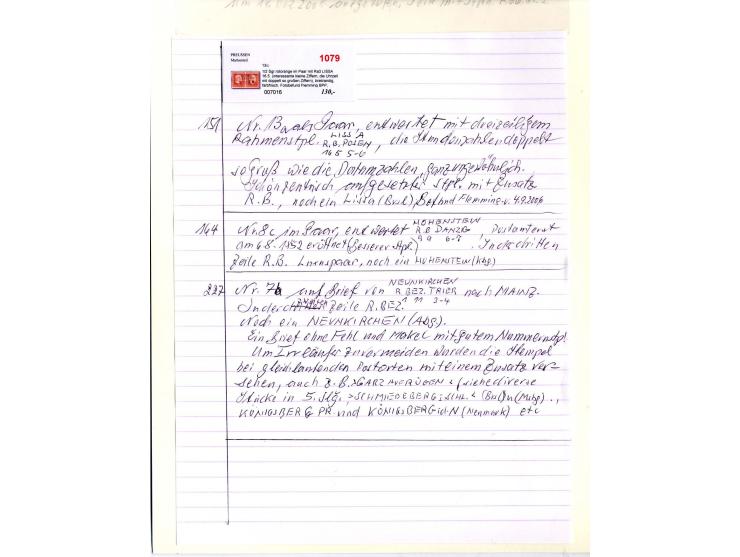 PREUSSEN
Markenteil
1079
1/2 Sgr rotorange im Paar mit Ra3 LISSA
16 5. (interessante kleine Ziffern, die Uhrzeit
mit doppelt so großen Ziffern), breitrandig,
farbfrisch, Fotobefund Flemming BPP.
007016 130,-
151 Nr. 13a als Paar, entwertet mit dreizeiligem
Rahmenstpl. LISSA
R.B. POSEN
16 5 5-6, die Stundenzahlen doppelt
so groß wie die Datumzahlen, ganz ungewöhnlich.
Schön zentrisch aufgesetzter Stpl. mit Zusatz
R.B., noch ein Lissa (Bresl.), Befund Flemming v. 4.9.2006
164 Nr. 8c im Paar, entwertet HOHENSTEIN
R.B DANZG
9 9 6-7, Postanstalt
am 6.8.1852 eröffnet (besserer Stpl.). In der dritten
Zeile R.B. Luxuspaar, noch ein HOHENSTEIN (Kbg)
227 Nr. 7b auf Brief von NEUNKIRCHEN
R. BEZ. TRIER
1 11 3-4 nach MAINZ.
In der zweiten Zeile R.BEZ.
Noch ein NEUNKIRCHEN (Abg).
Ein Brief ohne Fehl und Makel mit gutem Nummernstpl
Um Irrläufer zu vermeiden wurden die Stempel
bei gleichlautenden Postorten mit einem Zusatz ver-
sehen, auch z.B. >GARZ AUF RÜGEN< (siehe diverse
Stücke in 5. Slg. >SCHMIEDEBERG i. SCHL.< (Bsl) u (Mbg) ..,
KÖNIGSBERG PR. und KÖNIGSBERG i.d. N (Neumark) etc